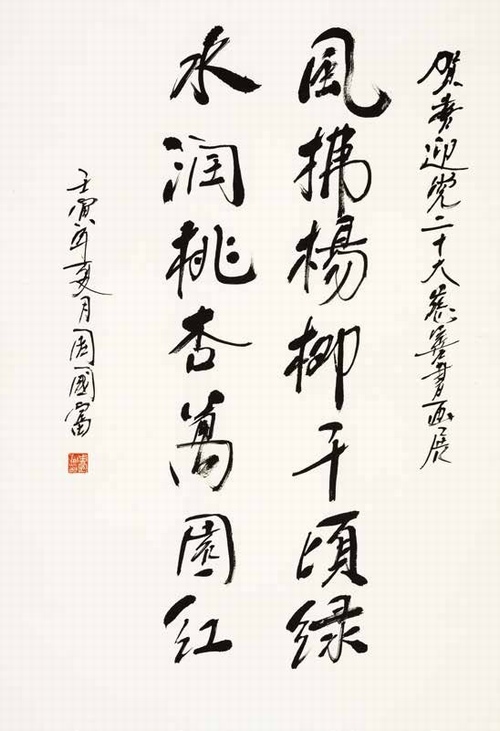 贺喜迎党二十大慈善书画展
風拂楊柳千頃绿
水润桃杏萬園红
壬寅年夏月周國富